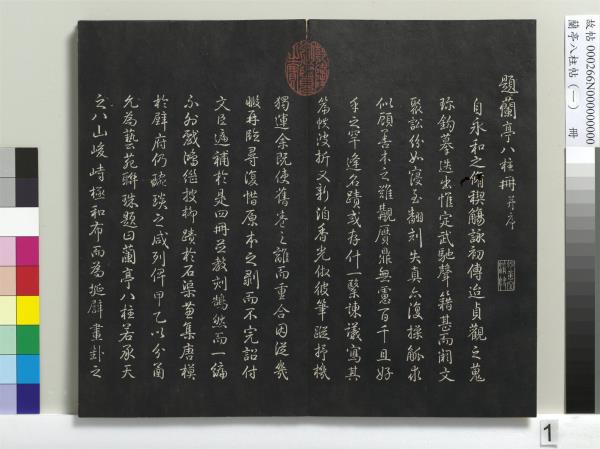 故帖 000266N000000000
蘭亭八柱帖(一) 冊
題蘭亭八柱冊并序
自永和之脩禊觴詠初傳迨貞觀之蒐
珍鈎摹迭出惟定武馳聲以藉甚而闕文
聚訟紛如寖至翻刻失真亦復操觚求
似顧善本之難觀贗鼎無慮百千且好
手之罕逢名蹟或存什一繄諫議寫其
篇帙波折又新洎香光倣彼筆蹤抒機
獨運余既使舊卷之離而重合因從幾
暇再臨尋復惜原本之剝而不完詔付
文臣遍補於是四冊並教刻鵠然而一編
不外戲鴻繼披柳蹟於石渠兼集唐模
於壁府仍琬琰之咸列俾甲乙以分函
允為藝苑聯珠題曰蘭亭八柱若承天
之八山峻峙極和布而為埏辟畫卦之
1